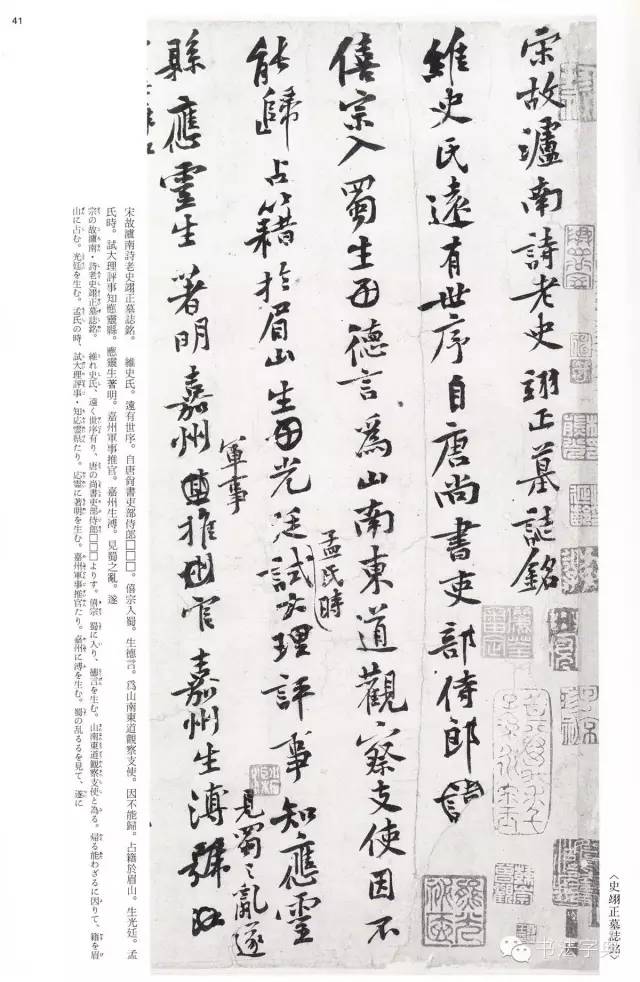 41
宋故瀘南詩老史翊正墓誌銘
維史氏遠有世序自唐尚書吏部侍郎諱
僖宗入蜀生德言爲山南東道觀察支使因不
能歸占籍於眉山生光廷試大理評事知應靈
孟氏時
縣應靈生著明嘉州推官嘉州生溥
軍事
見蜀之亂遂
〈史翊正墓誌銘〉
宋故瀘南詩老史翊正墓誌銘。　維史氏。遠有世序。自唐尚書吏部侍郎□□□。僖宗入蜀。生德言。爲山南東道觀察支使。因不能歸。占籍於眉山。生光廷。孟
氏時。試大理評事知應靈縣。應靈生著明。嘉州軍事推官。嘉州生溥。見蜀之亂。遂
宋の故瀘南・詩老史翊正墓誌銘。　維れ史氏、遠く世序有り、唐の尚書吏部侍郎□□□よりす。僖宗 蜀に入り、徳言を生む。山南東道観察支使と為る。帰る能わざるに因りて、籍を眉
山に占む。光廷を生む。孟氏の時、試大理評事・知応霊県たり。応霊に著明を生む。嘉州軍事推官たり。嘉州に溥を生む。蜀の乱るるを見て、遂に
书法字典